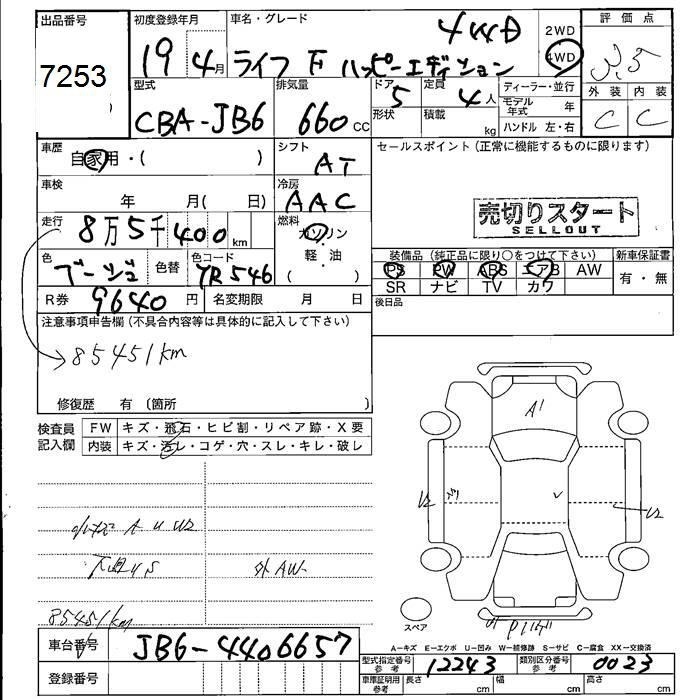 出品番号
7253
初度登録年月
19 4月
車名・グレード
4WD
ライフ F ハッピーエディション
2WD
4WD
評価点
3.5
外装 内装
C C
型式
CBA-JB6
排気量
660 CC
ドア
5
形状
定員
4人
積載
kg
ディーラー・並行
モデル年式 年
ハンドル 左・右
車歴
自家用・( )
シフト
AT
車検
年 月( 日)
冷房
AAC
走行
8万5千400km
燃料
ガソリン
軽・油
( )
色
ブージュ
色替
色コード
YR546
R券
9640円
名変期限 月 日
セールスポイント (正常に機能するものに限ります)
売切りスタート
SELLOUT
装備品 (純正品に限り○をつけて下さい)
新車保証書
PS PW ABS エアB AW
有・無
SR ナビ TV カワ
後日品
注意事項申告欄 (不具合内容等は具体的に記入して下さい)
85451km
修復歴 有 (箇所 )
検査員記入欄
FW キズ・飛石・ヒビ割・リペア跡・X要
内装 キズ・汚レ・コゲ・穴・スレ・キレ・破レ
A U U2
外AW
85451km
A1
U2
U2
スペア
A－キズ E－エクボ U－凹み W－補修跡 S－サビ C－腐食 XX－交換済
車台番号
JB6-4406657
登録番号
型式指定番号 参考
12243
類別区分番号 参考
0023
車庫証明用 参考
長さ cm 幅 cm 高さ cm